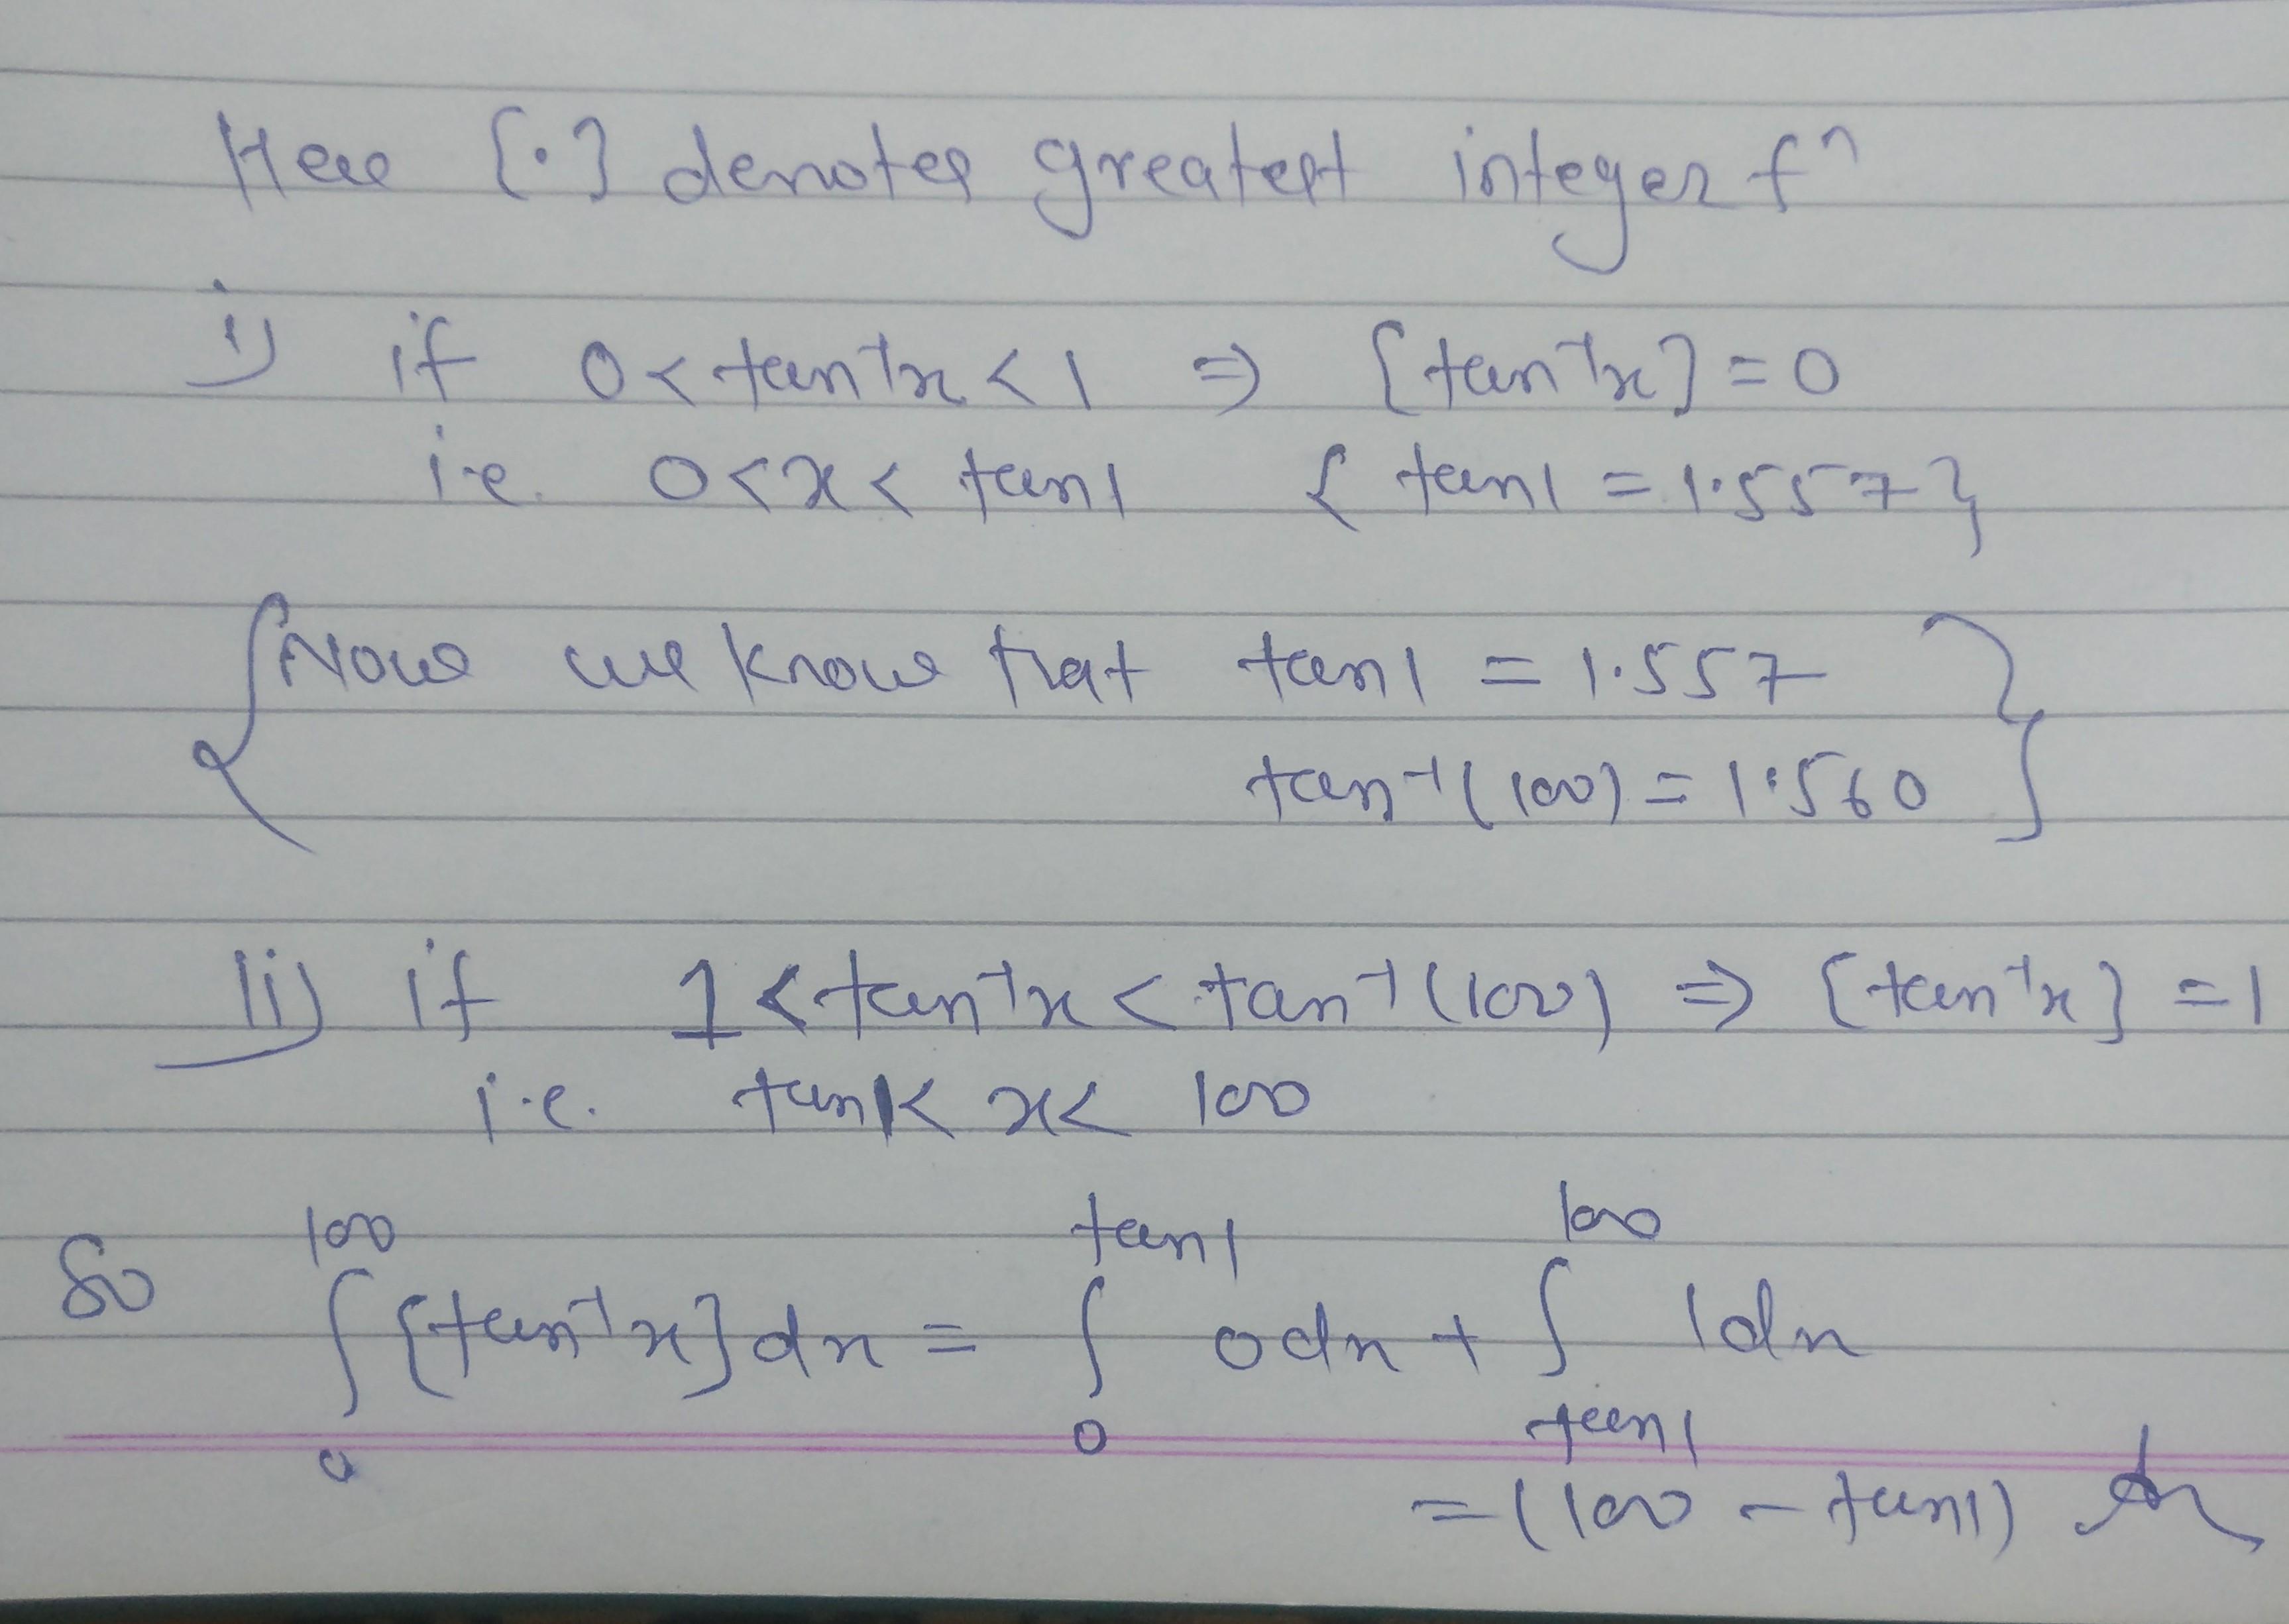 Here [.] denotes greatest integer fⁿ
i) if 0 < tan⁻¹x < 1 ⇒ [tan⁻¹x] = 0
i.e. 0 < x < tan1 { tan1 = 1.557 }
{ Now we know that tan1 = 1.557
tan⁻¹(100) = 1.560 }
ii) if 1 < tan⁻¹x < tan⁻¹(100) ⇒ [tan⁻¹x] = 1
i.e. tan1 < x < 100
So ∫₀¹⁰⁰ [tan⁻¹x] dx = ∫₀^tan1 0 dx + ∫_tan1^100 1 dx
= (100 - tan1) Ans